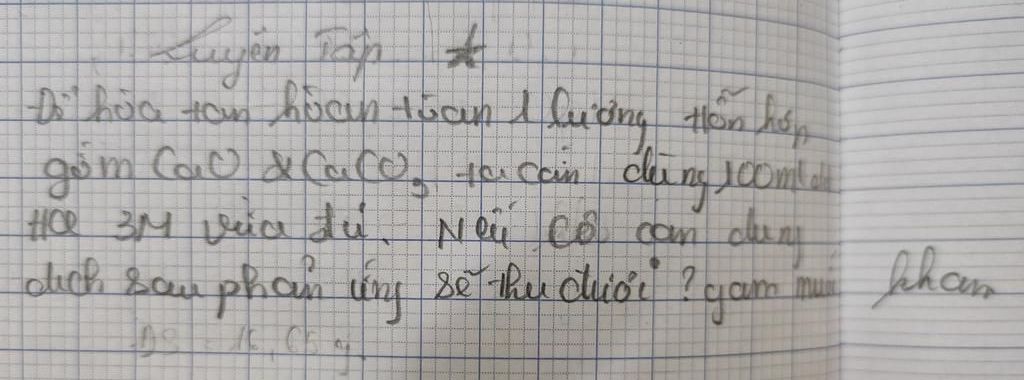 Luyện Tập
Để hòa tan hòan tòan 1 lượng Hỗn hợp
gồm CaO & CaCO3 ta cần dùng 100ml dd
HCl 3M vừa đủ. Nếu Cô cạn dung
dịch sau phản ứng sẽ thu được ? gam muối khan
ĐS: 16,65 g